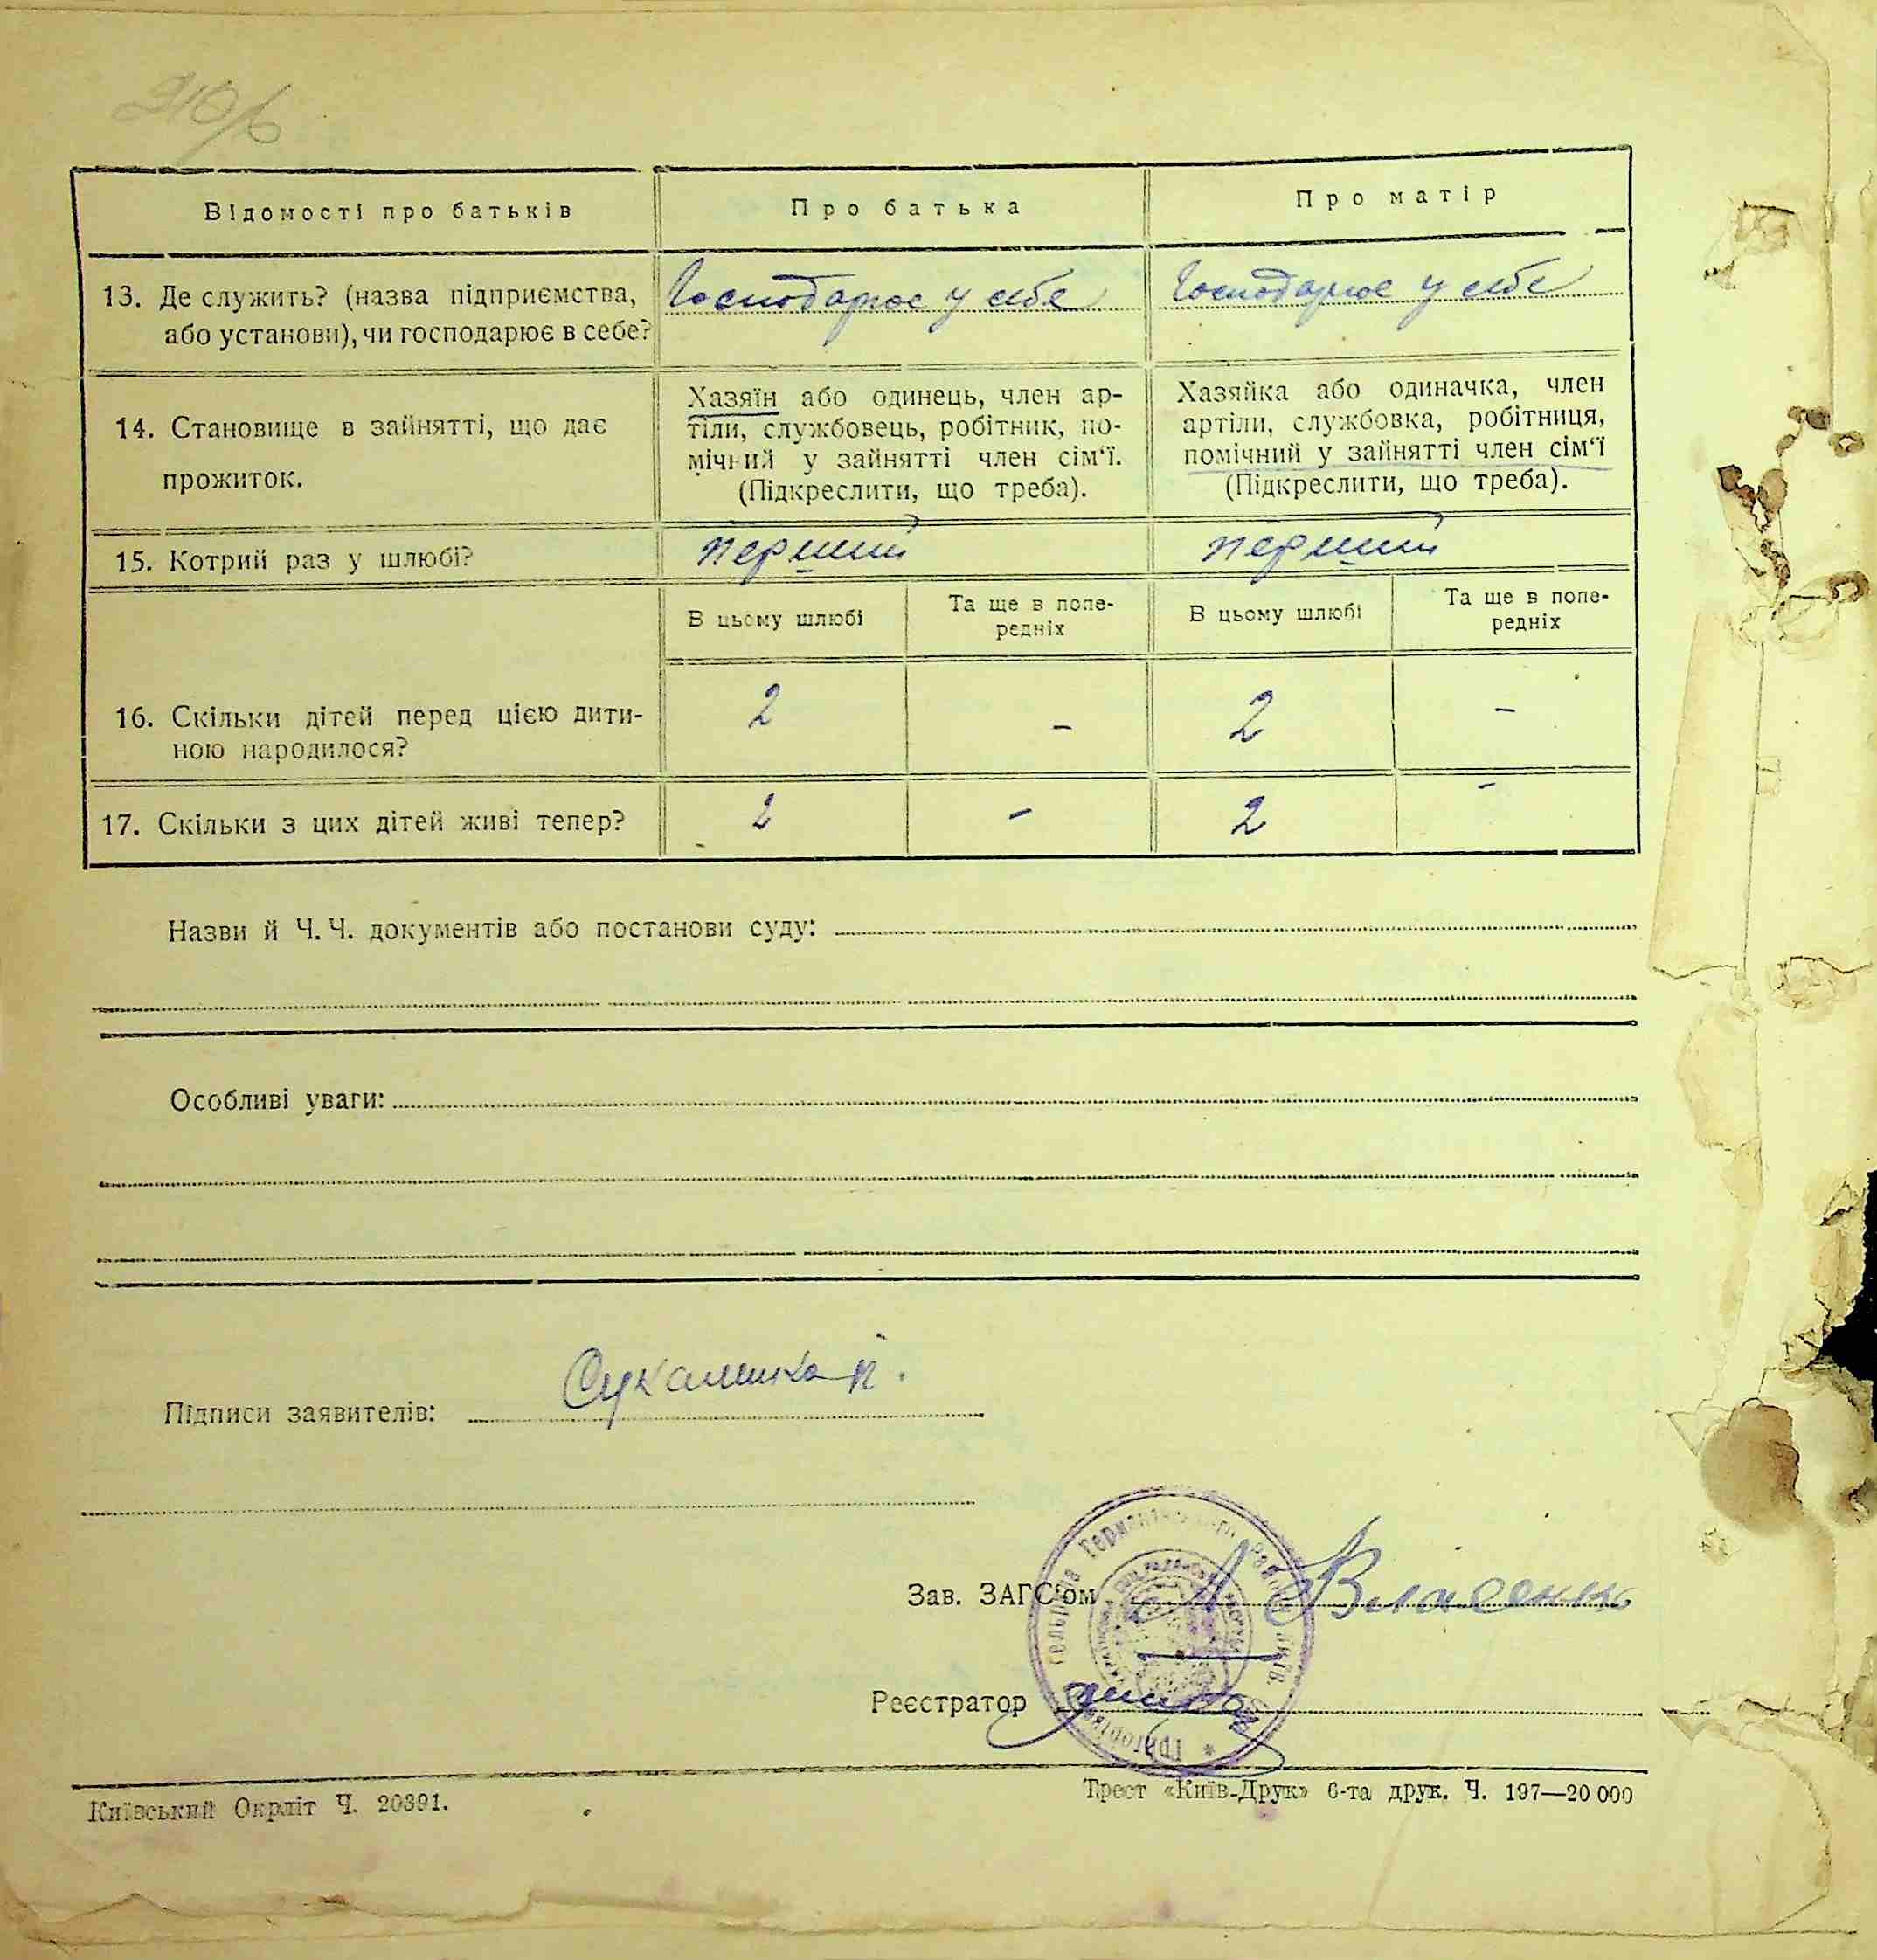 210/6
Відомості про батьків
Про батька
Про матір
13. Де служить? (назва підприємства,
або установи), чи господарює в себе?
Господарює у себе
Господарює у себе
14. Становище в зайнятті, що дає
прожиток.
Хазяїн або одинець, член ар-
тіли, службовець, робітник, по-
мічний у зайнятті член сім‘ї.
(Підкреслити, що треба).
Хазяйка або одиначка, член
артіли, службовка, робітниця,
помічний у зайнятті член сім‘ї
(Підкреслити, що треба).
15. Котрий раз у шлюбі?
перший
перший
В цьому шлюбі
Та ще в попе-
редніх
В цьому шлюбі
Та ще в попе-
редніх
16. Скільки дітей перед цією дити-
ною народилося?
2
-
2
-
17. Скільки з цих дітей живі тепер?
2
-
2
-
Назви й Ч. Ч. документів або постанови суду:
Особливі уваги:
Підписи заявителів:
Зав. ЗАГС‘ом
А Власенко
Реєстратор
Київський Окрліт Ч. 20391.
Трест «Київ-Друк» 6-та друк. Ч. 197—20 000